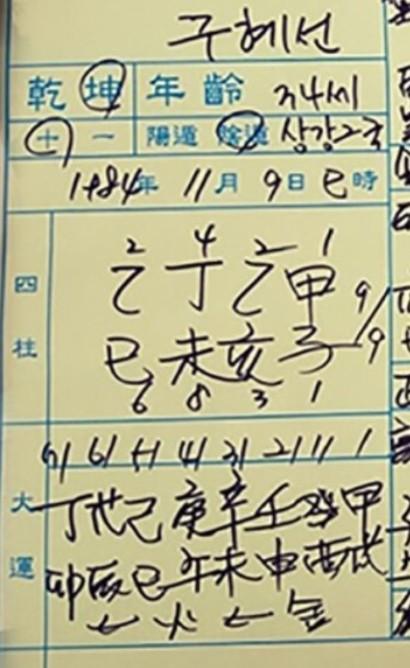 구혜선
乾 坤 年 齡 34세
十 一 陽遁 陰遁 상강2국
1984年 11月 9日 巳時
2 4 2 1
四 乙 丁 乙 甲 9
柱 巳 未 亥 子 9
6 8 3 1
71 61 51 41 31 21 11 1
大 丁 戊 己 庚 辛 壬 癸 甲
運 卯 辰 巳 午 未 申 酉 戌
← 火 ← 金